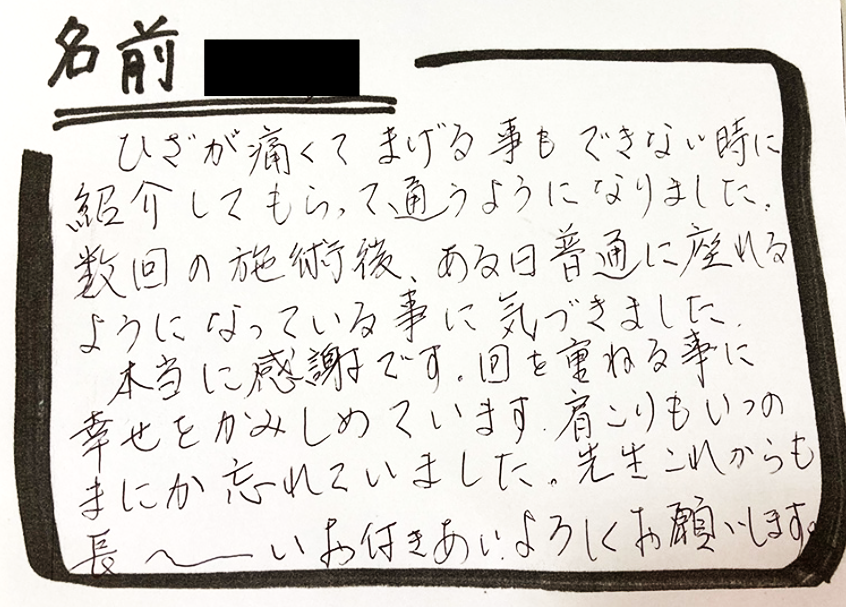 名前
ひざが痛くてまげる事もできない時に
紹介してもらって、通うようになりました。
数回の施術後、ある日普通に座れる
ようになっている事に気づきました。
本当に感謝です。回を重ねる事に
幸せをかみしめています。肩こりもいつの
まにか忘れていました。先生これからも
長〜いお付きあいよろしくお願いします。